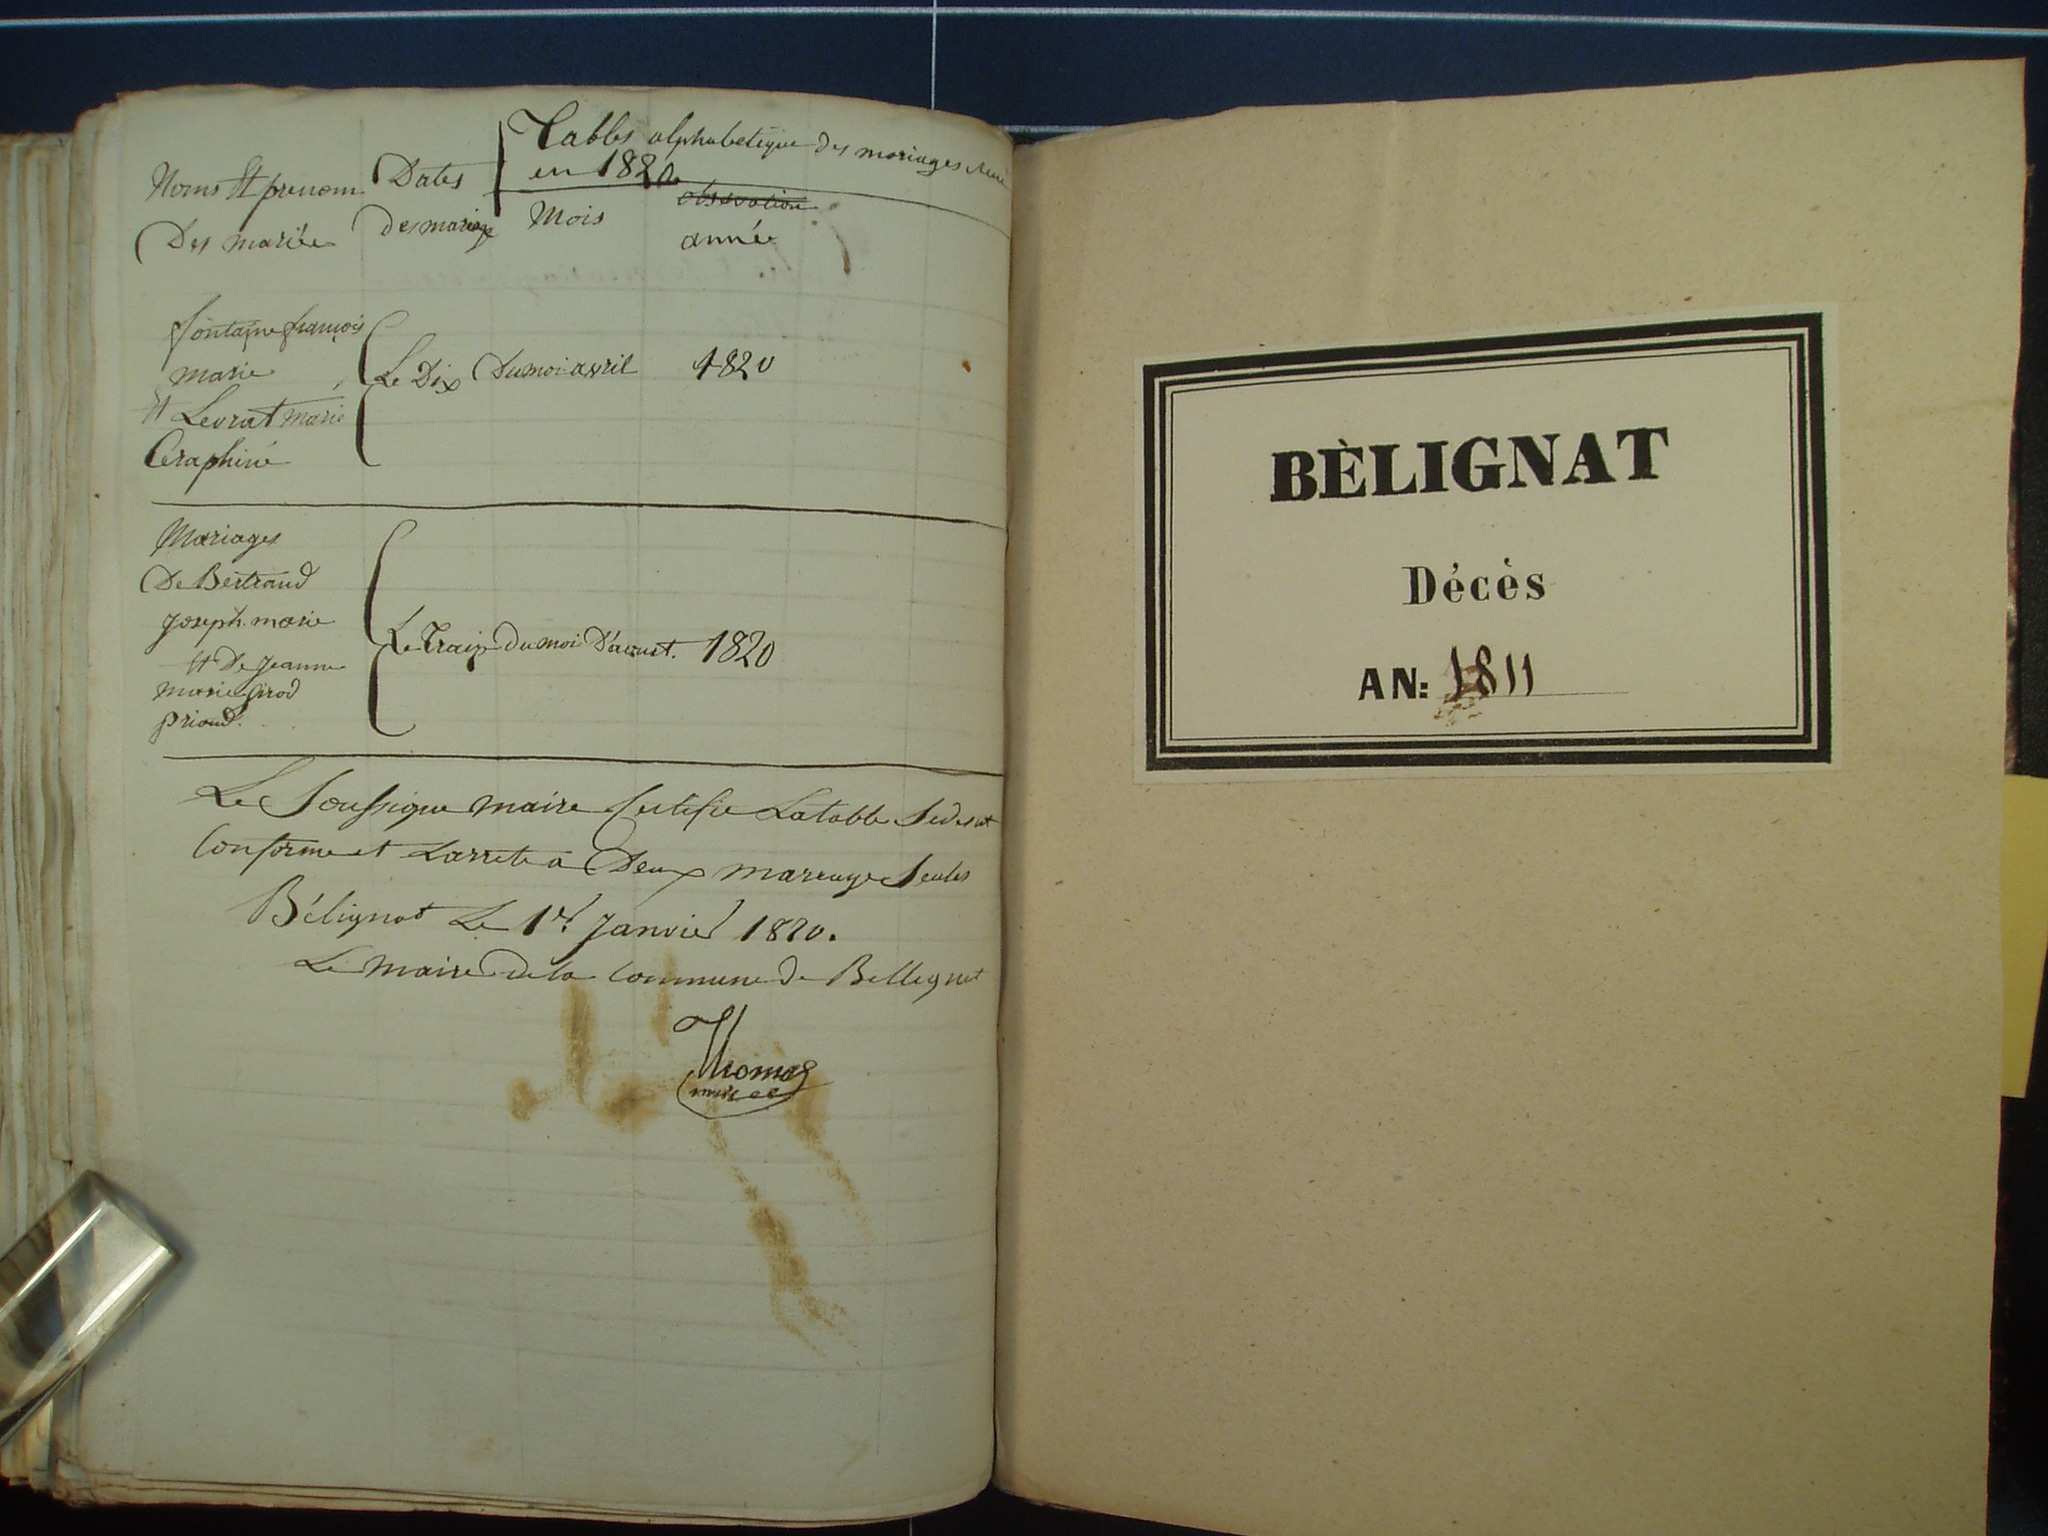 Tables alphabetique des mariages
en 1820
Noms Et prenom Dates
Des mariée des mariage Mois observation
année
fontaine françois
marie
Et Levrat marie
Ceraphine
Le Dix Du moi avril 1820
Mariages
De Bertrand
joseph marie
Et De jeanne
marie girod
priand.
Le Traize du moi D'aoust. 1820
Le Soussigne maire Certifie La table
Conforme et Larrete a Deux mareage Seules
Bélignat Le 1er Janvier 1820.
Le maire de la Commune de Bellegnat
Thomas
maire
BÈLIGNAT
Décès
AN: 1811